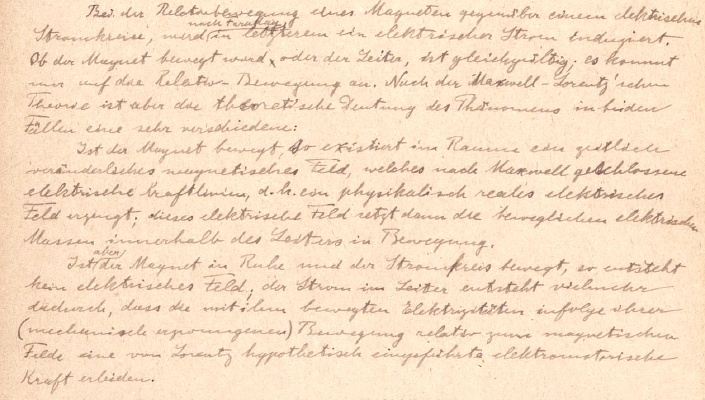 Bei der Relativbewegung eines Magneten gegenüber einem elektrischen
nach Faraday
Stromkreise, wird in letzterem ein elektrischer Strom induziert.
Ob der Magnet bewegt wird, oder der Leiter, ist gleichgültig; es kommt
nur auf die Relativ-Bewegung an. Nach der Maxwell-Lorentz'schen
Theorie ist aber die theoretische Deutung des Phänomens in beiden
Fällen eine sehr verschiedene:
Ist der Magnet bewegt, so existiert im Raume ein zeitlich
veränderliches magnetisches Feld, welches nach Maxwell geschlossene
elektrische Kraftlinien, d.h. ein physikalisch reales elektrisches
Feld erzeugt; dieses elektrische Feld setzt dann die beweglichen elektrischen
Massen innerhalb des Leiters in Bewegung.
aber
Ist der Magnet in Ruhe und der Stromkreis bewegt, so entsteht
kein elektrisches Feld; der Strom im Leiter entsteht vielmehr
dadurch, dass die mit ihm bewegten Elektrizitäten infolge ihrer
(mechanisch erzwungenen) Bewegung relativ zum magnetischen
Felde eine von Lorentz hypothetisch eingeführte elektromotorische
Kraft erleiden.